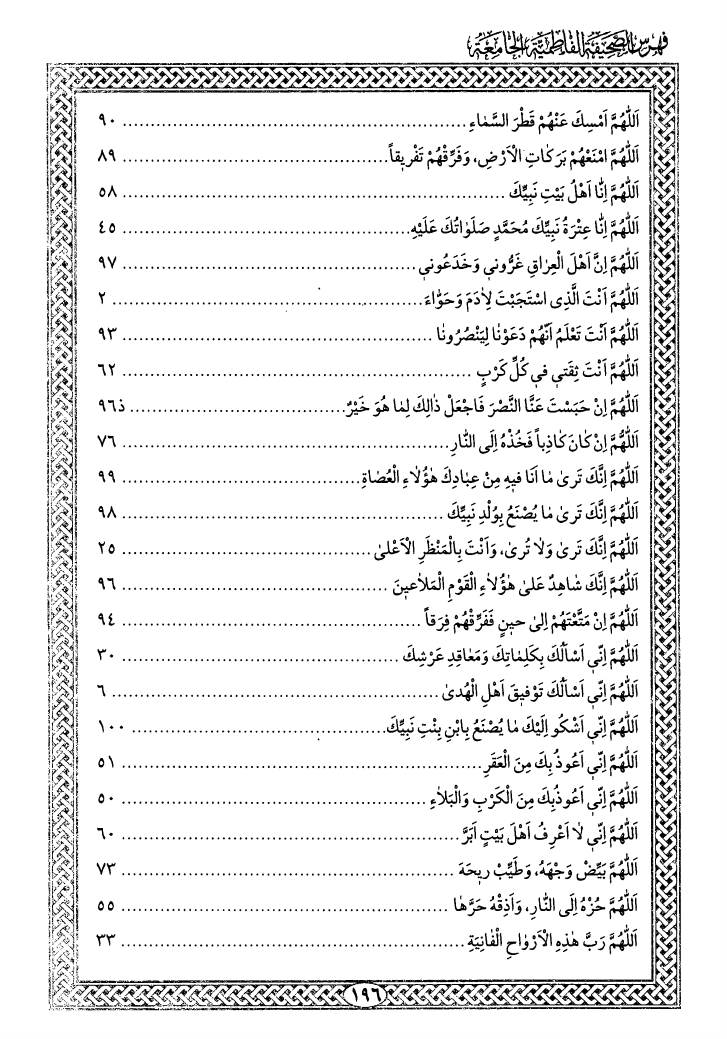 فهرس الصحيفة الفاطمية الجامعة
اَللّٰهُمَّ اَمْسِكَ عَنْهُمْ قَطْرَ السَّمٰاءِ ........ ٩٠
اَللّٰهُمَّ امْنَعْهُمْ بَرَكٰاتِ الْاَرْضِ، وَفَرِّقْهُمْ تَفْريقاً ........ ٨٩
اَللّٰهُمَّ اِنّٰا اَهْلُ بَيْتِ نَبِيِّكَ ........ ٥٨
اَللّٰهُمَّ اِنّٰا عِتْرَةُ نَبِيِّكَ مُحَمَّدٍ صَلَوٰاتُكَ عَلَيْهِ ........ ٤٥
اَللّٰهُمَّ اِنَّ اَهْلَ الْعِرٰاقِ غَرُّوني وَخَدَعُوني ........ ٩٧
اَللّٰهُمَّ اَنْتَ الَّذِى اسْتَجَبْتَ لِاٰدَمَ وَحَوّٰاءَ ........ ٢
اَللّٰهُمَّ اَنْتَ تَعْلَمُ اَنَّهُمْ دَعَوْنٰا لِيَنْصُرُونٰا ........ ٩٣
اَللّٰهُمَّ اَنْتَ ثِقَتي في كُلِّ كَرْبٍ ........ ٦٢
اَللّٰهُمَّ اِنْ حَبَسْتَ عَنَّا النَّصْرَ فَاجْعَلْ ذٰالِكَ لِمٰا هُوَ خَيْرٌ ........ ذ٩٦
اَللّٰهُمَّ اِنْ كٰانَ كٰاذِباً فَخُذْهُ اِلَى النّٰارِ ........ ٧٦
اَللّٰهُمَّ اِنَّكَ تَرىٰ مٰا اَنَا فيهِ مِنْ عِبٰادِكَ هٰؤُلٰاءِ الْعُصٰاةِ ........ ٩٩
اَللّٰهُمَّ اِنَّكَ تَرىٰ مٰا يُصْنَعُ بِوُلْدِ نَبِيِّكَ ........ ٩٨
اَللّٰهُمَّ اِنَّكَ تَرىٰ وَلاٰ تُرىٰ، وَاَنْتَ بِالْمَنْظَرِ الْاَعْلىٰ ........ ٢٥
اَللّٰهُمَّ اِنَّكَ شٰاهِدٌ عَلىٰ هٰؤُلٰاءِ الْقَوْمِ الْمَلٰاعينَ ........ ٩٦
اَللّٰهُمَّ اِنْ مَتَّعْتَهُمْ اِلىٰ حينٍ فَفَرِّقْهُمْ فِرَقاً ........ ٩٤
اَللّٰهُمَّ اِنّي اَسْاَلُكَ بِكَلِمٰاتِكَ وَمَعٰاقِدِ عَرْشِكَ ........ ٣٠
اَللّٰهُمَّ اِنّي اَسْاَلُكَ تَوْفيقَ اَهْلِ الْهُدىٰ ........ ٦
اَللّٰهُمَّ اِنّي اَشْكُو اِلَيْكَ مٰا يُصْنَعُ بِابْنِ بِنْتِ نَبِيِّكَ ........ ١٠٠
اَللّٰهُمَّ اِنّي اَعُوذُ بِكَ مِنَ الْعَقَرِ ........ ٥١
اَللّٰهُمَّ اِنّي اَعُوذُبِكَ مِنَ الْكَرْبِ وَالْبَلٰاءِ ........ ٥٠
اَللّٰهُمَّ اِنّي لاٰ اَعْرِفُ اَهْلَ بَيْتٍ اَبَرَّ ........ ٦٠
اَللّٰهُمَّ بَيِّضْ وَجْهَهُ، وَطَيِّبْ ريحَهَ ........ ٧٣
اَللّٰهُمَّ حُزْهُ اِلَى النّٰارِ، وَاَذِقْهُ حَرَّهٰا ........ ٥٥
اَللّٰهُمَّ رَبَّ هٰذِهِ الْاَرْوٰاحِ الْفٰانِيَةِ ........ ٣٣
١٩٦